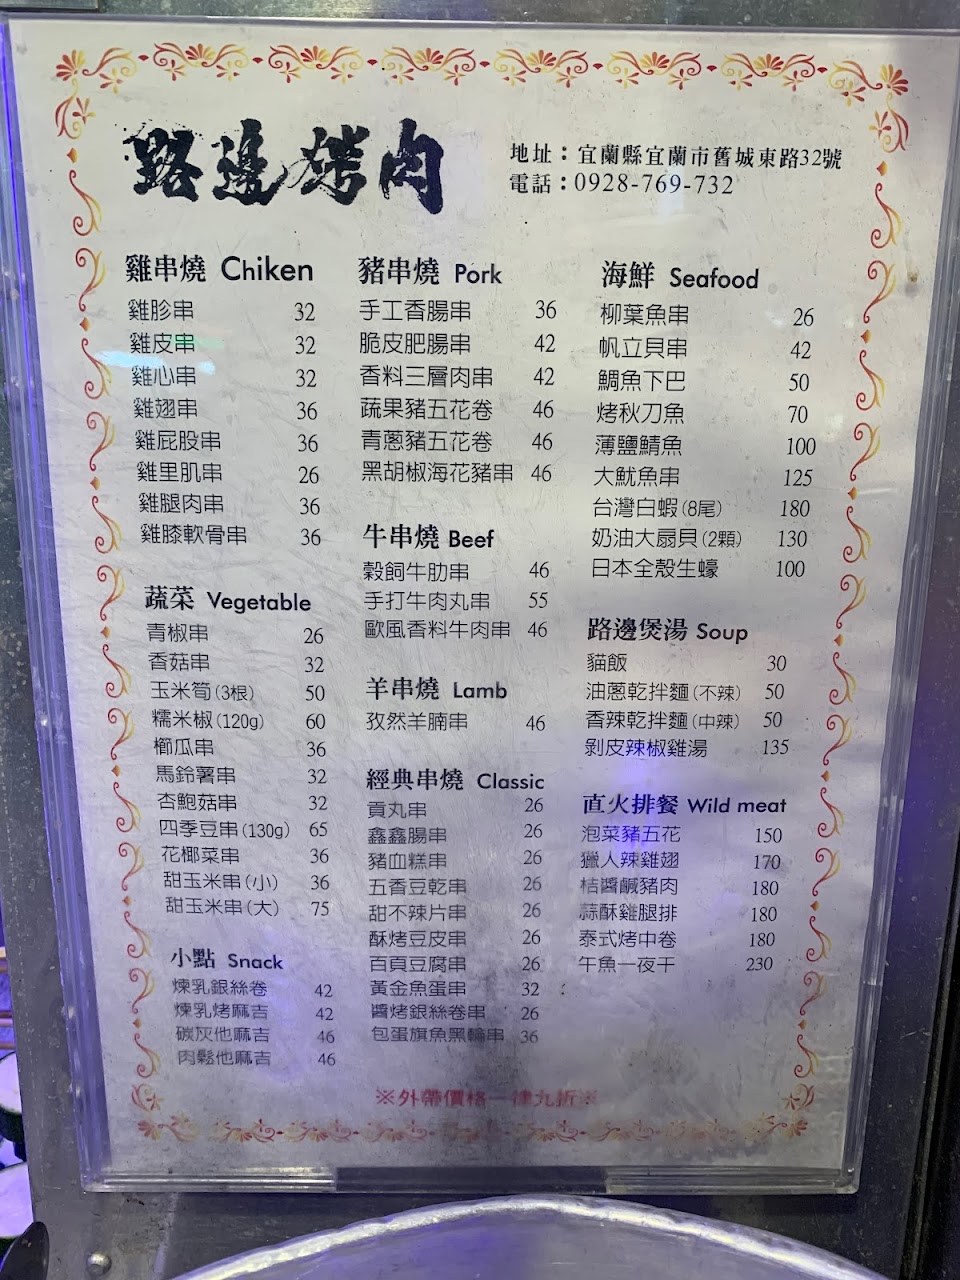 路邊烤肉
地址：宜蘭縣宜蘭市舊城東路32號
電話：0928-769-732
雞串燒 Chiken
雞胗串 32
雞皮串 32
雞心串 32
雞翅串 36
雞屁股串 36
雞里肌串 26
雞腿肉串 36
雞膝軟骨串 36
蔬菜 Vegetable
青椒串 26
香菇串 32
玉米筍(3根) 50
糯米椒(120g) 60
櫛瓜串 36
馬鈴薯串 32
杏鮑菇串 32
四季豆串(130g) 65
花椰菜串 36
甜玉米串(小) 36
甜玉米串(大) 75
小點 Snack
煉乳銀絲卷 42
煉乳烤麻吉 42
碳灰他麻吉 46
肉鬆他麻吉 46
豬串燒 Pork
手工香腸串 36
脆皮肥腸串 42
香料三層肉串 42
蔬果豬五花卷 46
青蔥豬五花卷 46
黑胡椒海花豬串 46
牛串燒 Beef
穀飼牛肋串 46
手打牛肉丸串 55
歐風香料牛肉串 46
羊串燒 Lamb
孜然羊腩串 46
經典串燒 Classic
貢丸串 26
鑫鑫腸串 26
豬血糕串 26
五香豆乾串 26
甜不辣片串 26
酥烤豆皮串 26
百頁豆腐串 26
黃金魚蛋串 32
醬烤銀絲卷串 26
包蛋旗魚黑輪串 36
海鮮 Seafood
柳葉魚串 26
帆立貝串 42
鯛魚下巴 50
烤秋刀魚 70
薄鹽鯖魚 100
大魷魚串 125
台灣白蝦(8尾) 180
奶油大扇貝(2顆) 130
日本全殼生蠔 100
路邊煲湯 Soup
貓飯 30
油蔥乾拌麵(不辣) 50
香辣乾拌麵(中辣) 50
剝皮辣椒雞湯 135
直火排餐 Wild meat
泡菜豬五花 150
獵人辣雞翅 170
桔醬鹹豬肉 180
蒜酥雞腿排 180
泰式烤中卷 180
午魚一夜干 230
※外帶價格一律九折※